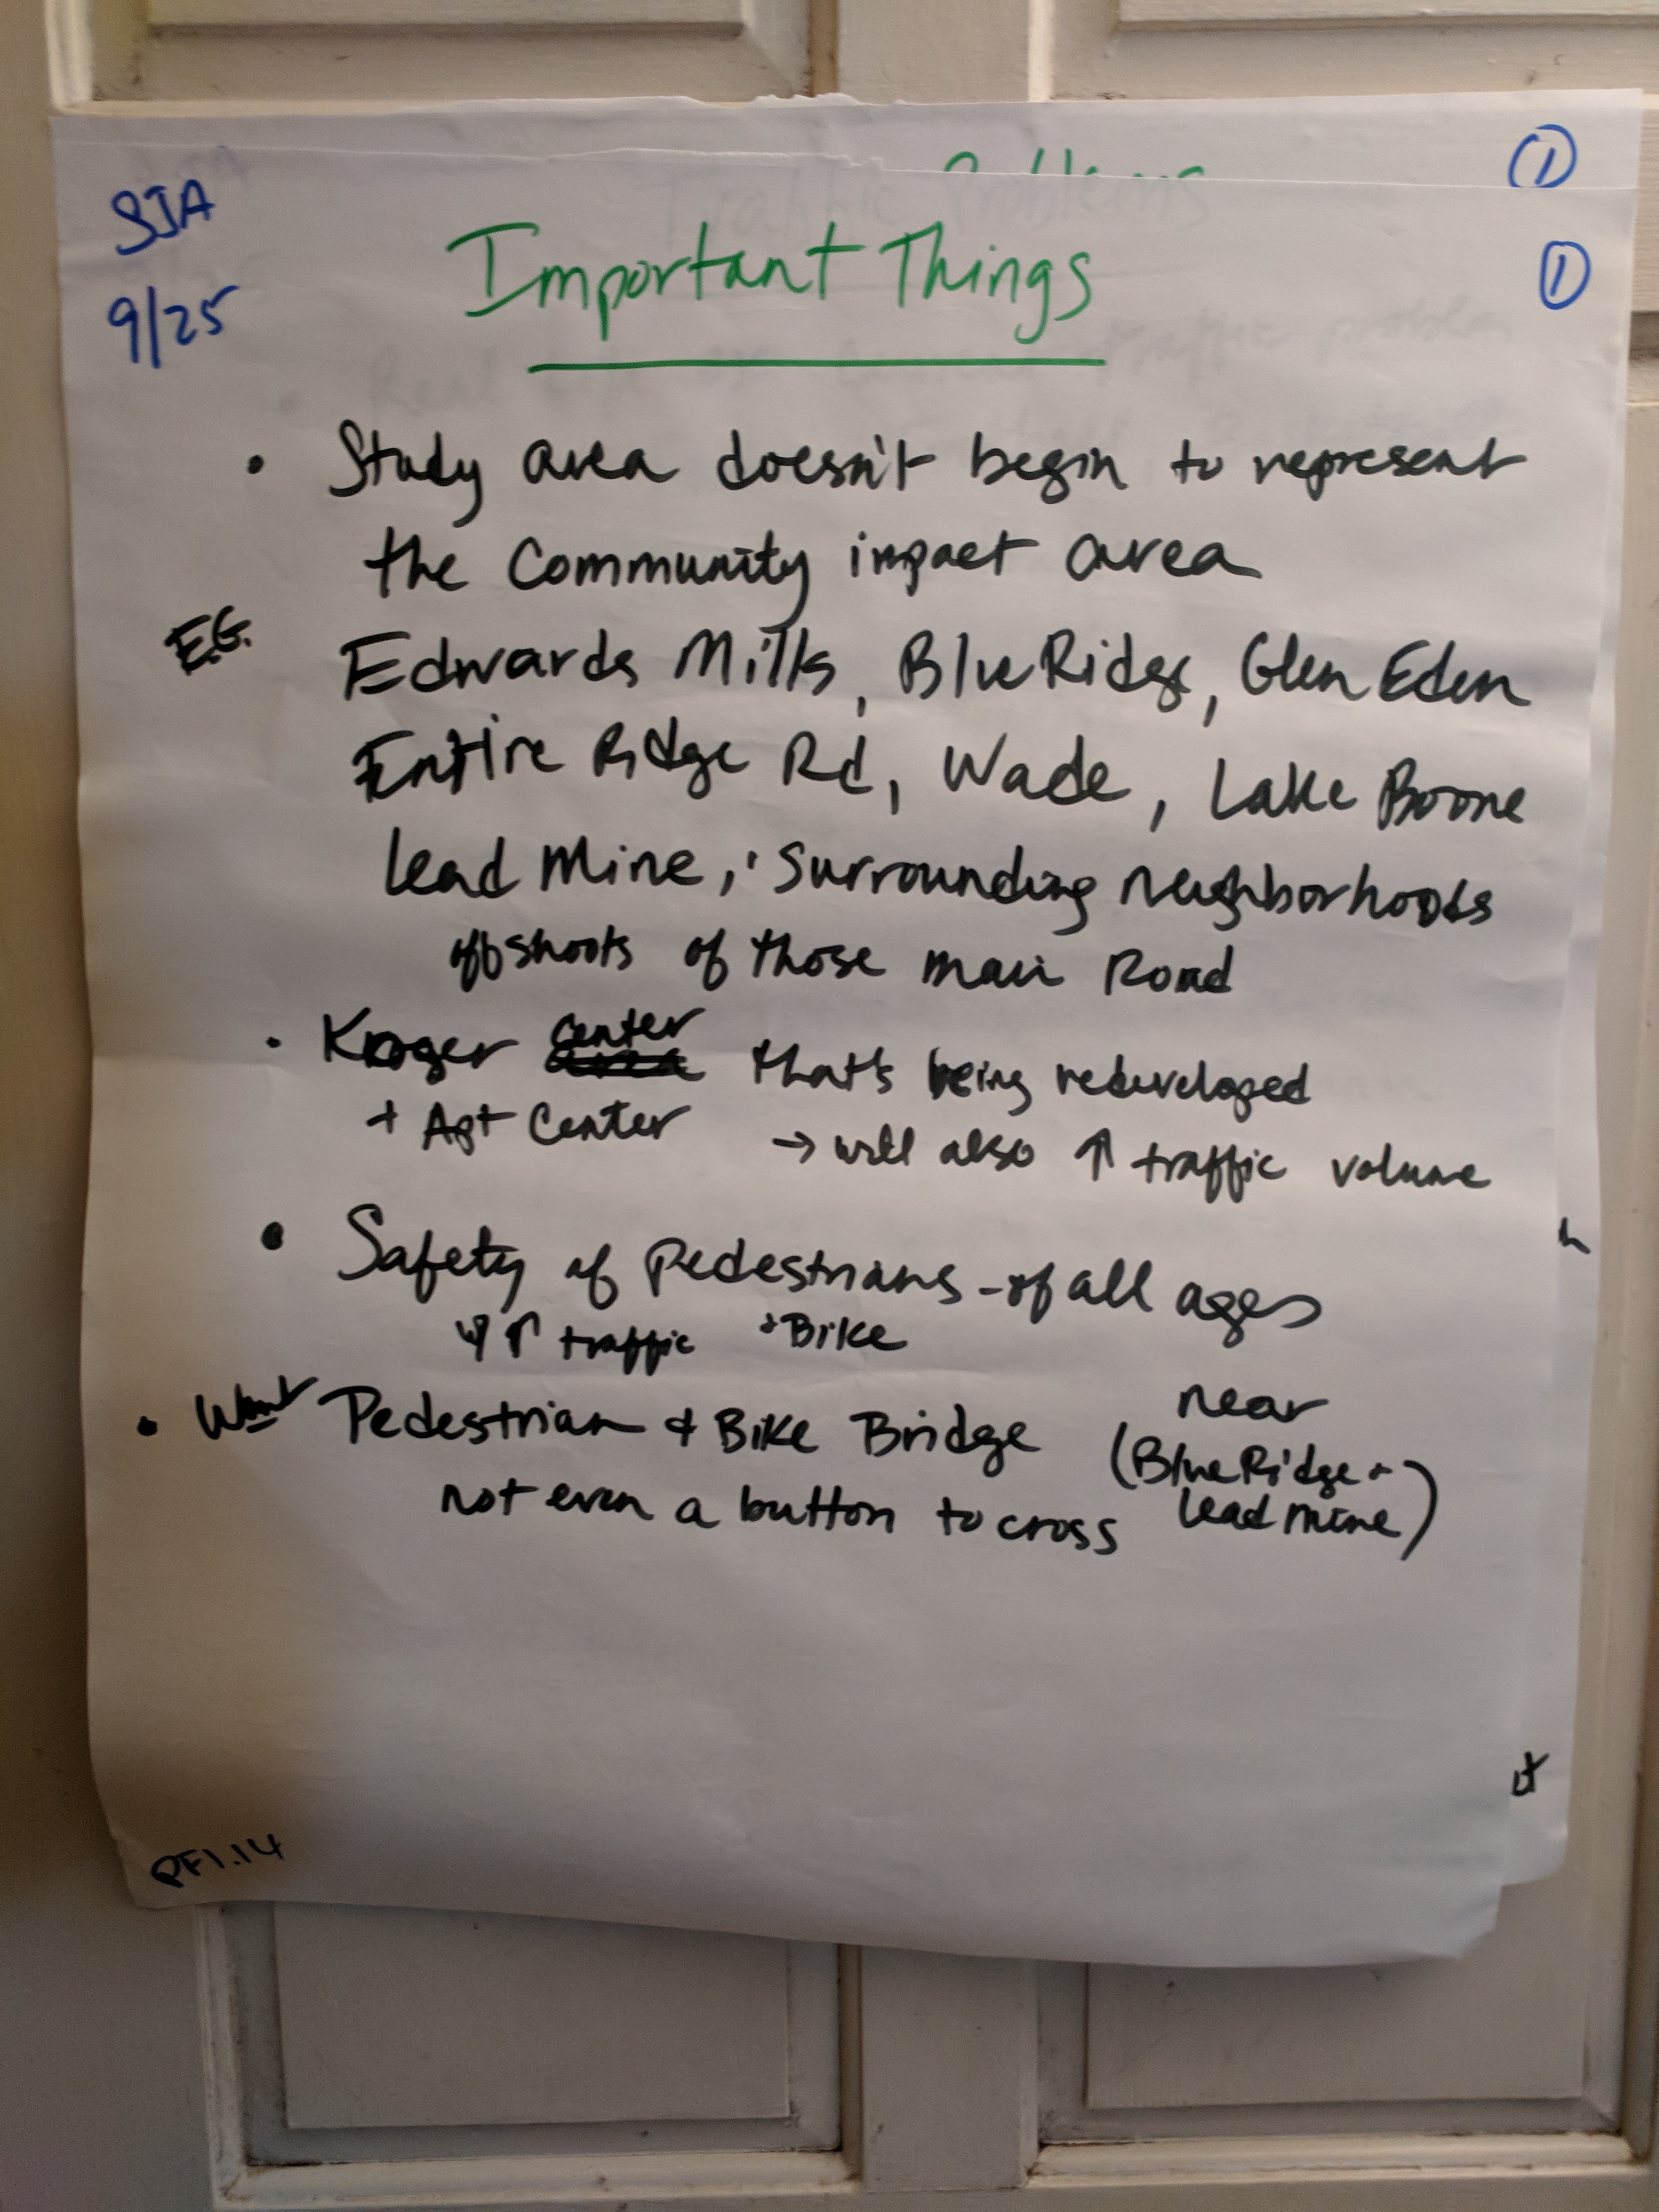 SJA
9/25
①
①
Important Things
• Study area doesn't begin to represent
the Community impact area
E.G. Edwards Mills, Blue Ridge, Glen Eden
Entire Ridge Rd, Wade, Lake Boone
Lead Mine, Surrounding neighborhoods
offshoots of those main Road
• Kroger center that's being redeveloped
+ Apt Center → will also ↑ traffic volume
• Safety of Pedestrians - of all ages
w/ ↑ traffic + Bike
• Want Pedestrian & Bike Bridge near
(Blue Ridge +
not even a button to cross Lead Mine)